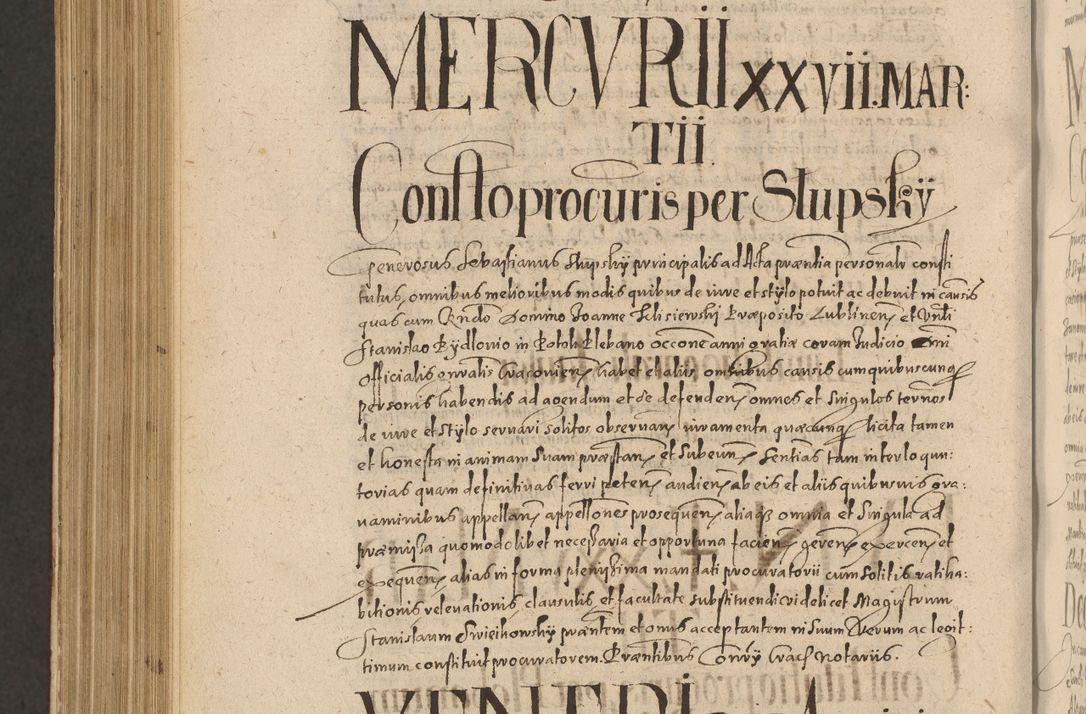 MERCVRII XXVII. MAR:
TII.
Constõ procuris per Slupskÿ
Generosus Sebastianus Slupskÿ principalis ad Acta præntia personalr consti
tutus, omnibus melioribus modis quibus de iure et stÿlo potuit ac debuit in causis
quas cum Rndo Domino Joanne Filisiewski Præposito Lublinen, et Vnli
Stanislao Rÿdlouio in Potok Plebano occone anni gratiæ coram Judicio
Officialis gnralis Cracouien, habet et aliis omnibus causis cum quibuscunq
personis habendis ad agendum et se defenden, omnes et singulos ternos
de iure et stÿlo seruari solitos obseruan, iuramenta quæcunq, licita tamen
et honesta in animam suam præstan, et subeun, sentias tam interloqun:
torias quam definitiuas ferri peten, audien, ab eis et aliis quibusuis gra:
uaminibus appellan, appellones prosequen, aliaqs omnia et singula ad
præmissa quomodolibet necessaria et opportuna facien, geren, exercen, et
exequen, alias in forma plenissima mandati procuratorii cum solitis ratiha:
bitionis releuationis clausulis, et facultate substituendi videlicet Magistrum
Stanislaum Swieikowskÿ præntem et onus acceptantem in suum Verum ac legit:
timum constituit procuratorem. Præntibus Conrÿ Crac Notariis.